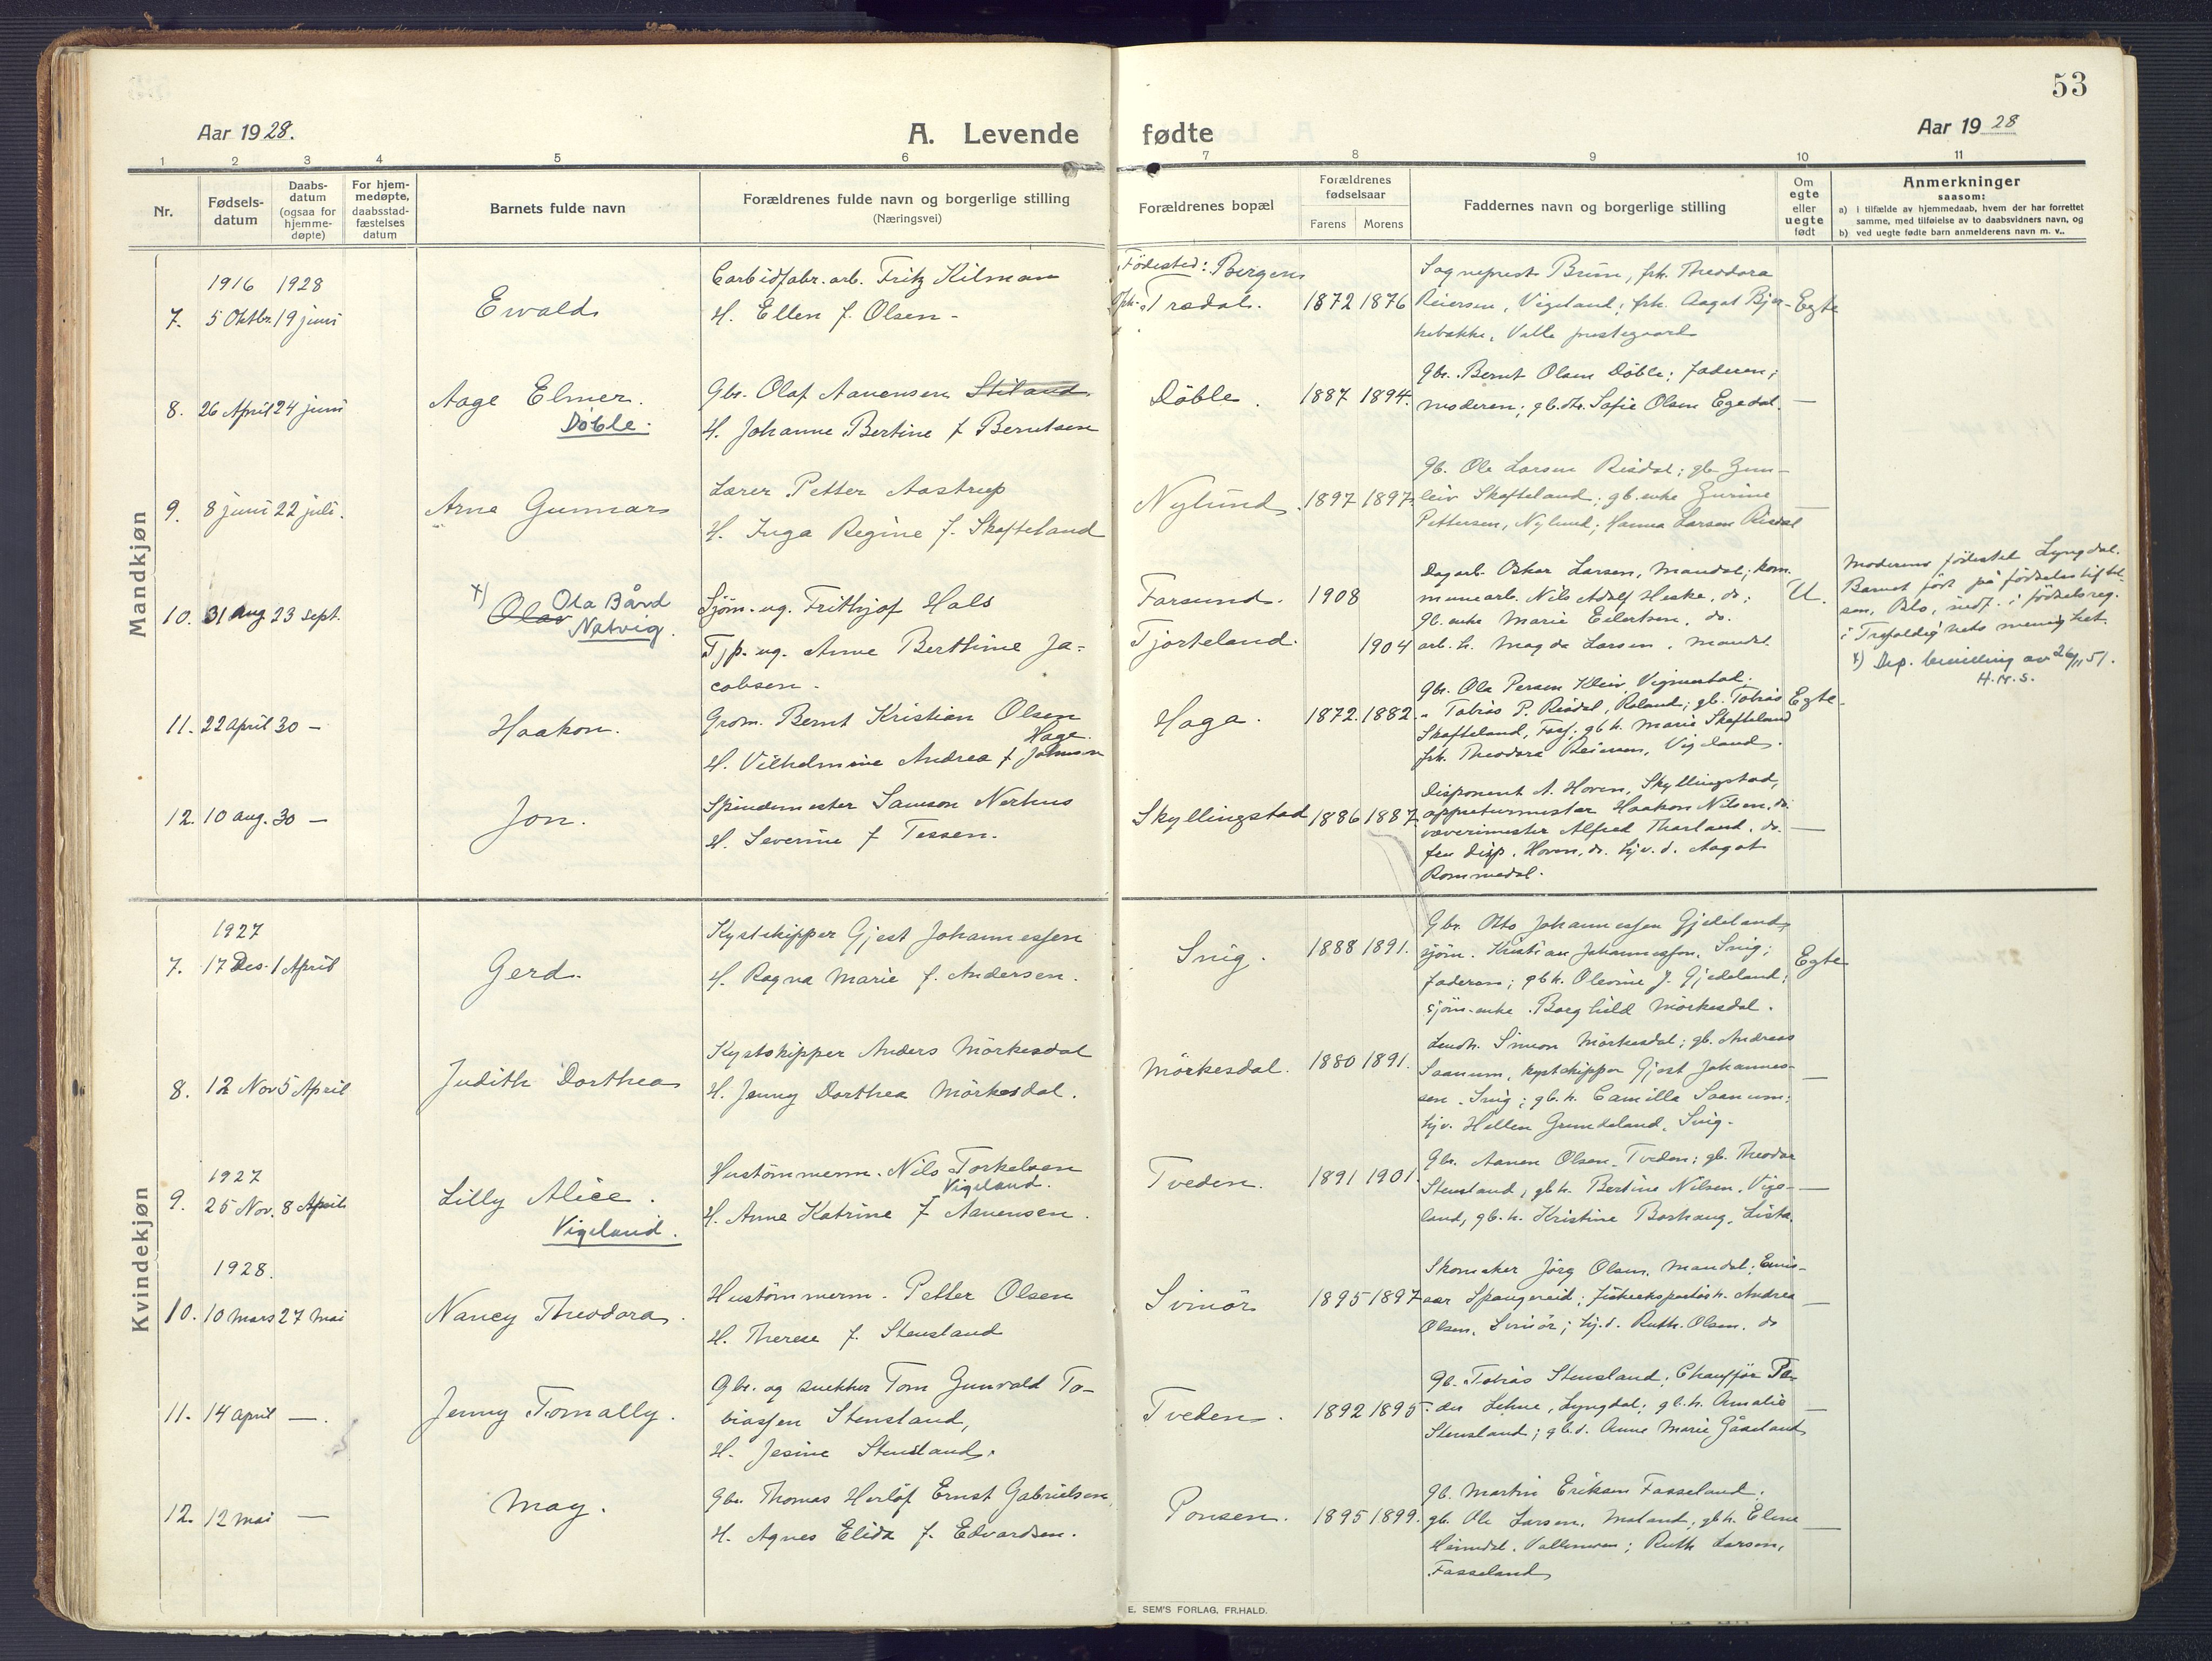 53
Aar 1928.
A. Levende fødte
Aar 1928
1 2 3 4 5 6 7 8 9 10 11
Nr.
Fødsels-
datum
Daabs-
datum
(ogsaa for
hjemme-
døpte)
For hjem-
medøpte,
daabsstad-
fæstelses
datum
Barnets fulde navn
Forældrenes fulde navn og borgerlige stilling
(Næringsvei)
Forældrenes bopæl
Forældrenes
fødselsaar
Farens Morens
Faddernes navn og borgerlige stilling
Om
egte
eller
uegte
født
Anmerkninger
saasom:
a) i tilfælde av hjemmedaab, hvem der har forrettet
samme, med tilføielse av to daabsvidners navn, og
b) ved uegte fødte barn anmelderens navn m. v..
Mandkjøn
1916 1928
7. 5 Oktbr 19 juni
Ewald
Carbidfabr. arb. Fritz Kilman
H. Ellen f. Olsen -
Födested: Bergen
Trædal.
1872 1876
Sogneprest Bruun, frk. Theodora
Reiersen, Vigeland; frk. Aagot Bjer-
kebakke, Valle prestegaard
Egte
8. 26 April 24 juni
Aage Elmer.
Döble.
Gbr. Olaf Aanensen Stiland
H. Johanne Bertine f Berntsen
Döble.
1887 1894.
Gbr. Bernt Olsen Döble; faderen;
moderen; gb.dtr. Sofie Olsen Egedal.
—
9. 8 juni 22 juli.
Arne Gunnar
Lærer Petter Aastrup
H. Inga Regine f. Skofteland
Nylund.
1897 1897.
Gb. Ole Larsen Risdal; gb Gun-
leiv Skofteland; gb.enke Gurine
Pettersen, Nylund; Hanna Larsen Risdal
—
10. 31 aug 23 sept.
x) Olav Ola Bård
Natvig.
Sjøm. ug. Frithjof Hals
Tjp. ug. Anne Berthine Ja-
cobsen.
Farsund.
Tjorteland.
1908
1904
Dagarb. Oskar Larsen, Mandal; kom.
munearb. Nils Adolf Heske, do;
gb. enke Marie Eilertsen, do.
arb. h. Magda Larsen, Mandal.
U.
Moderens födested Lyngdal.
Barnet född på födselsstiftel-
sen, Oslo, indf. i födselsreg.
i Trefoldighets menighet.
x) Dep. bevilling av 26/11 51.
H.H.S.
11. 22 April 30 —
Haakon.
Grom. Bernt Kristian Olsen
Hage.
H. Vilhelmine Andrea f Johnsen
Haga.
1872. 1882.
Gbr. Ola Persen Kleiv Vigmostad.
" Tobias P. Risdal, Roland; gb. Tobias
Skofteland, Foss; gb h. Marie Skofteland
frk. Theodora Reiersen, Vigeland.
Egte
12. 10 aug. 30 —
Jon.
Spindemester Samson Nerhus
H. Severine f Tessen.
Skyllingstad
1886 1887.
Disponent A. Hoven, Skyllingstad,
appreturmester Haakon Nilsen, do.
væverimester Alfred Tharland, do.
fru Disp. Hoven, do. hjv. d. Aagot
Rommedal.
—
Kvindekjøn
1927
7. 17 Des. 1 April
Gerd.
Kystskipper Gjest Johannessen
H. Ragna Marie f. Andersen.
Snig.
1888 1891.
Gbr. Otto Johannessen Gjedeland,
sjöm. Kristian Johannessen, Snig;
faderen; gb h. Olevine J. Gjedeland;
sjöm-enke Borghild Mörkesdal.
Egte
8. 12 Nov 5 April
Judith Dorthea
Kystskipper Anders Mörkesdal
H. Jenny Dorthea Mörkesdal.
Mörkesdal.
1880 1891.
Lendh. Simon Mörkesdal; gb. Andreas
Saanum, kystskipper Gjest Johannes-
sen, Snig; gb.h. Camilla Saanum;
hjv. Hellen Grundeland, Snig.
—
1927
9. 25 Nov. 8 April
Lilly Alice.
Vigeland.
Hustömmerm. Nils Torkelsen
Vigeland.
H. Anne Katrine f Aanensen.
Tveden.
1891 1901.
Gbr. Aanen Olsen, Tveden; gb. Theodor
Stensland; gb h. Bertine Nilsen, Vige-
land, gb. h. Kristine Borhaug, Lista.
—
1928.
10. 10 Mars 27 Mai
Nancy Theodora.
Hustömmerm. Petter Olsen
H. Therese f. Stensland
Svinör
1895 1897
Skomaker Jörg Olsen, Mandal; Emis-
sær Spangereid; fiskeekspedits h. Andrea
Olsen, Svinör; hj. d. Ruth Olsen, do
—
11. 14 april —.
Jenny Tomally.
Gbr. og snekker Tom Gunvald To-
biassen Stensland,
H. Jesine Stensland.
Tveden.
1892 1895
Gb. Tobias Stensland, Chaufför Pe-
der Lehne, Lyngdal; gb.h. Amalie
Stensland; gb.d. Anne Marie Gåseland
—
12. 12 Mai —
May.
Gbr. Thomas Herlöf Ernst Gabrielsen,
H. Agnes Elida f. Edvardsen.
Ponsen.
1895 1899.
gb. Martin Eriksen Fasseland.
gb. Ole Larsen, Maland, gb h. Eline
Heimdal, Vallemoen; Ruth Larsen,
Fasseland
—
E. SEM'S FORLAG, FR.HALD.